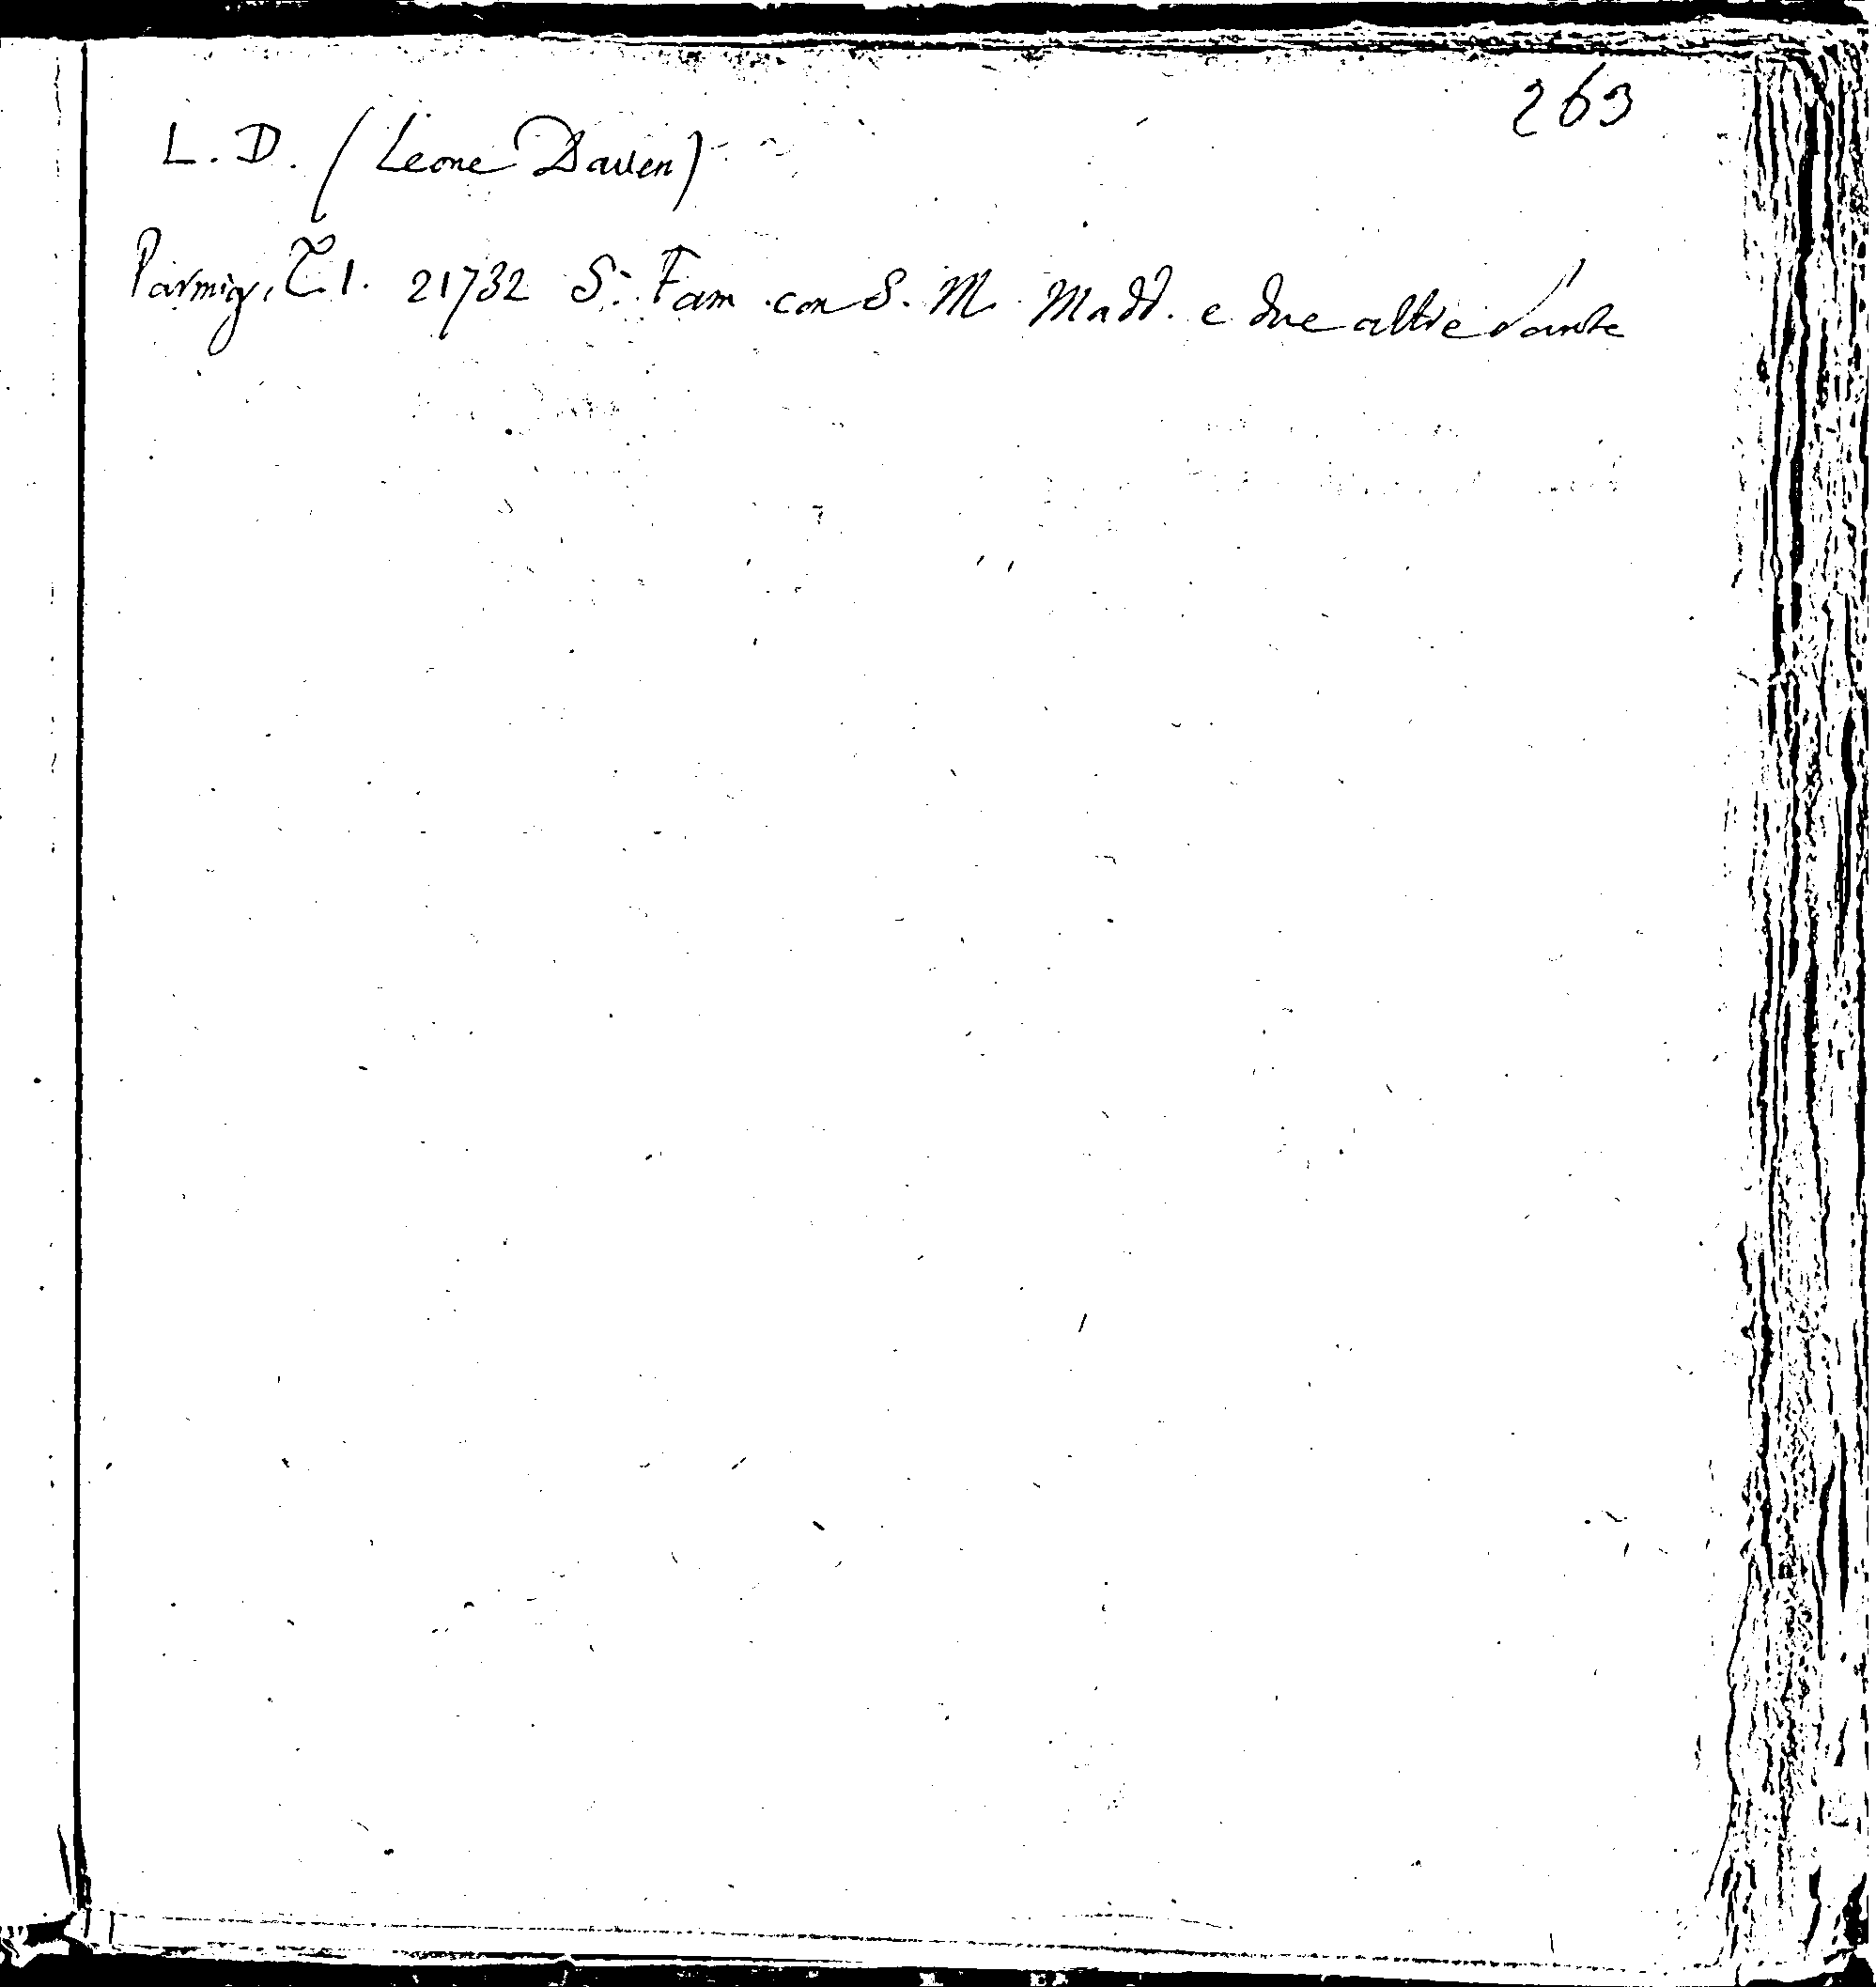 263
L. D. (Leone Daven)
Parmig. T. 1. 21732 S. Fam. con S. M. Madd. e due altre sante